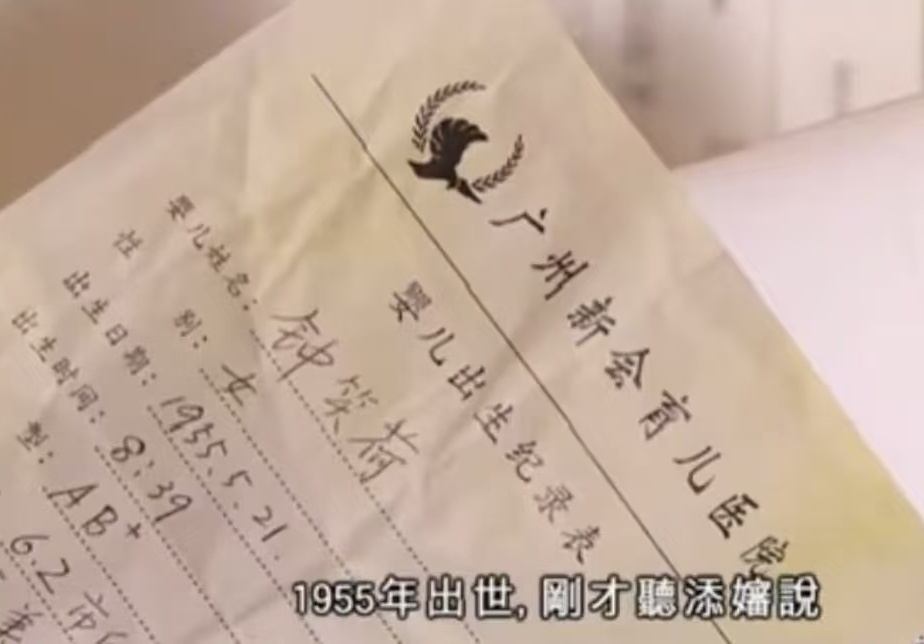 广州新会育儿医院
婴儿出生纪录表
婴儿姓名: 钟笑荷
性别: 女
出生日期: 1955.5.21.
出生时间: 8:39
型: AB+
6.2
1955年出世, 剛才聽添嬸說